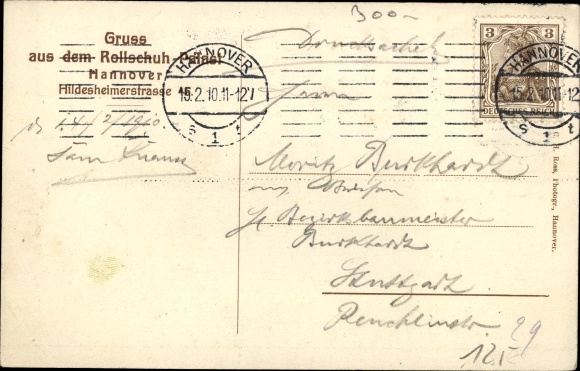 300-
Gruss
aus dem Rollschuh-Palast
Hannover
Hildesheimerstrasse
HANNOVER
15.2.10.11-12V
s 1 t
3 3
DEUTSCHES REICH
HANNOVER
15.2.10.11-12
s 1 t
Drucksache
Herrn
Moritz Burkhardt
Bezirksbaumeister
Burkhardt
Stuttgart
Reuchlinstr. 29
125
Ross, Photogr., Hannover.